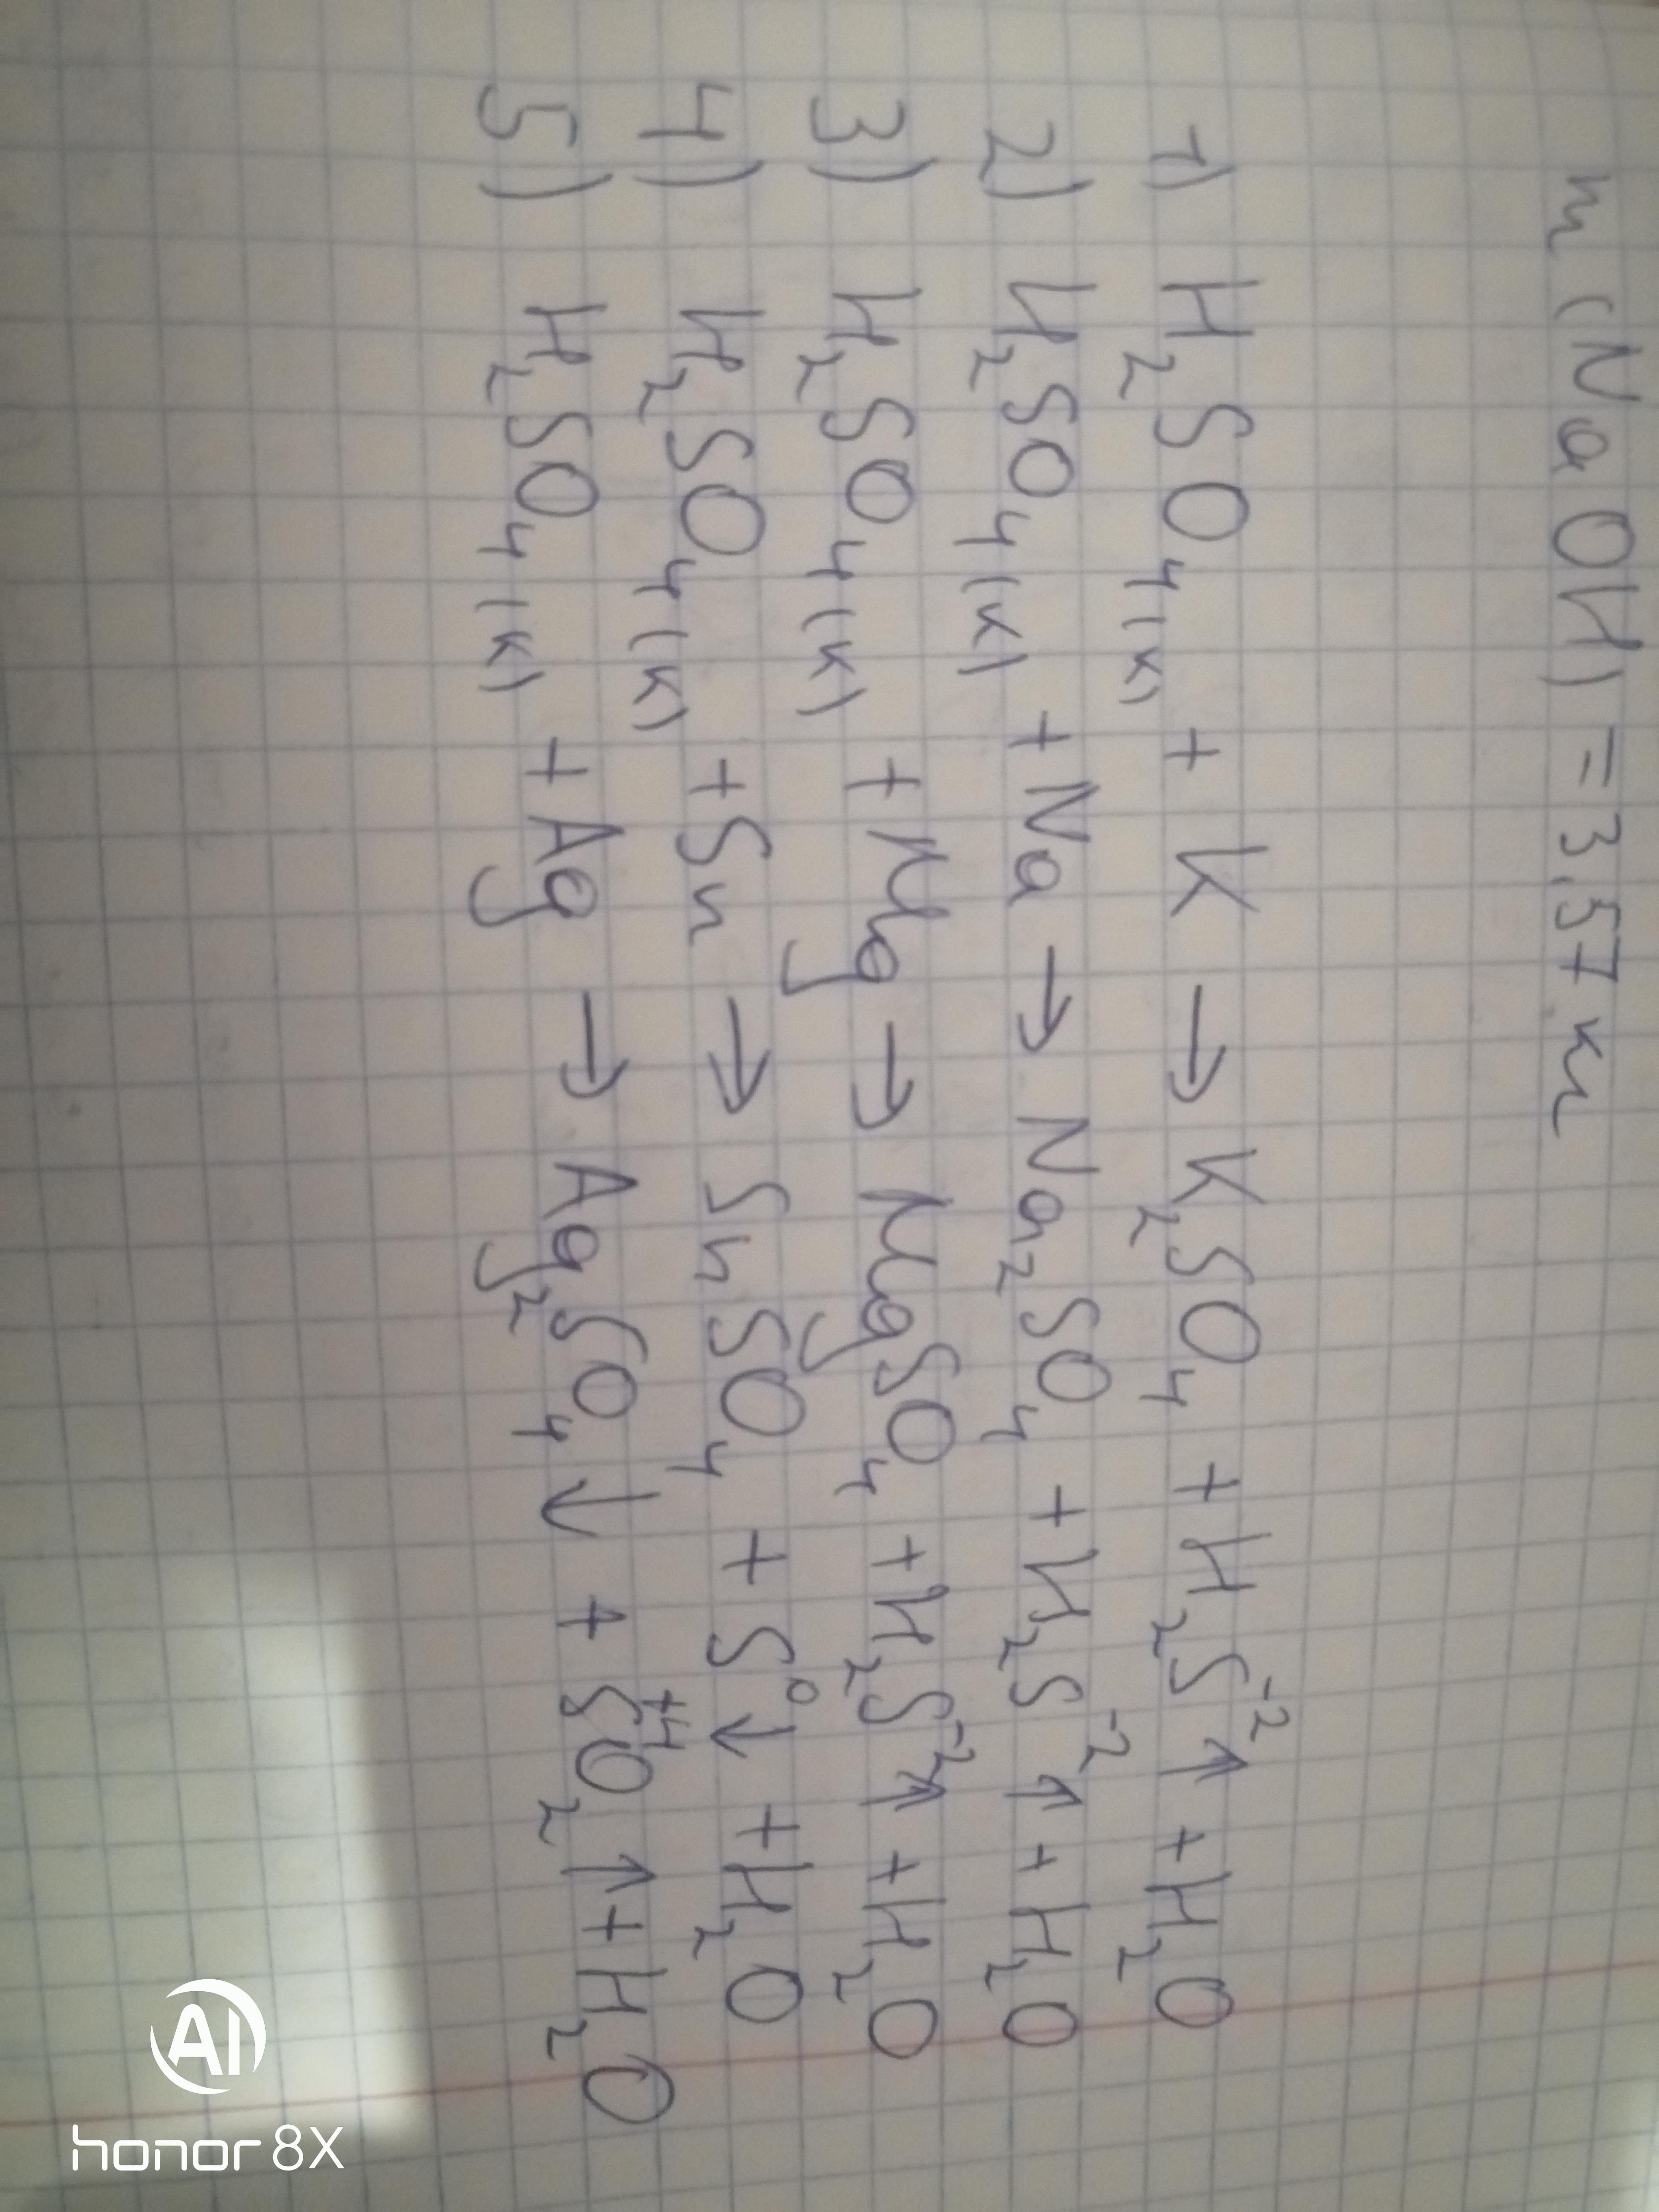 m (NaOH) = 3,57 м
1) H₂SO₄(к) + K → K₂SO₄ + H₂S⁻²↑ + H₂O
2) H₂SO₄(к) + Na → Na₂SO₄ + H₂S⁻²↑ + H₂O
3) H₂SO₄(к) + Mg → MgSO₄ + H₂S⁻²↑ + H₂O
4) H₂SO₄(к) + Sn → SnSO₄ + S⁰↓ + H₂O
5) H₂SO₄(к) + Ag → Ag₂SO₄↓ + S⁺⁴O₂↑ + H₂O
AI
honor 8X